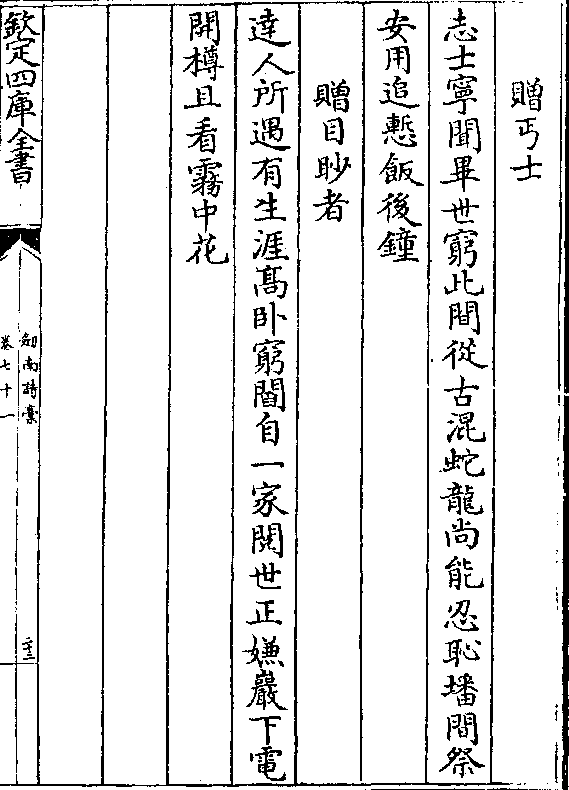 贈丐士
志士寧聞畢世窮此間從古混蛇龍尚能忍恥墦間祭
安用追慙飯後鐘
贈目眇者
達人所遇有生涯髙卧窮閻自一家閱世正嫌巖下電
開樽且看霧中花
欽定四庫全書
劍南詩藁
卷七十一
二十三